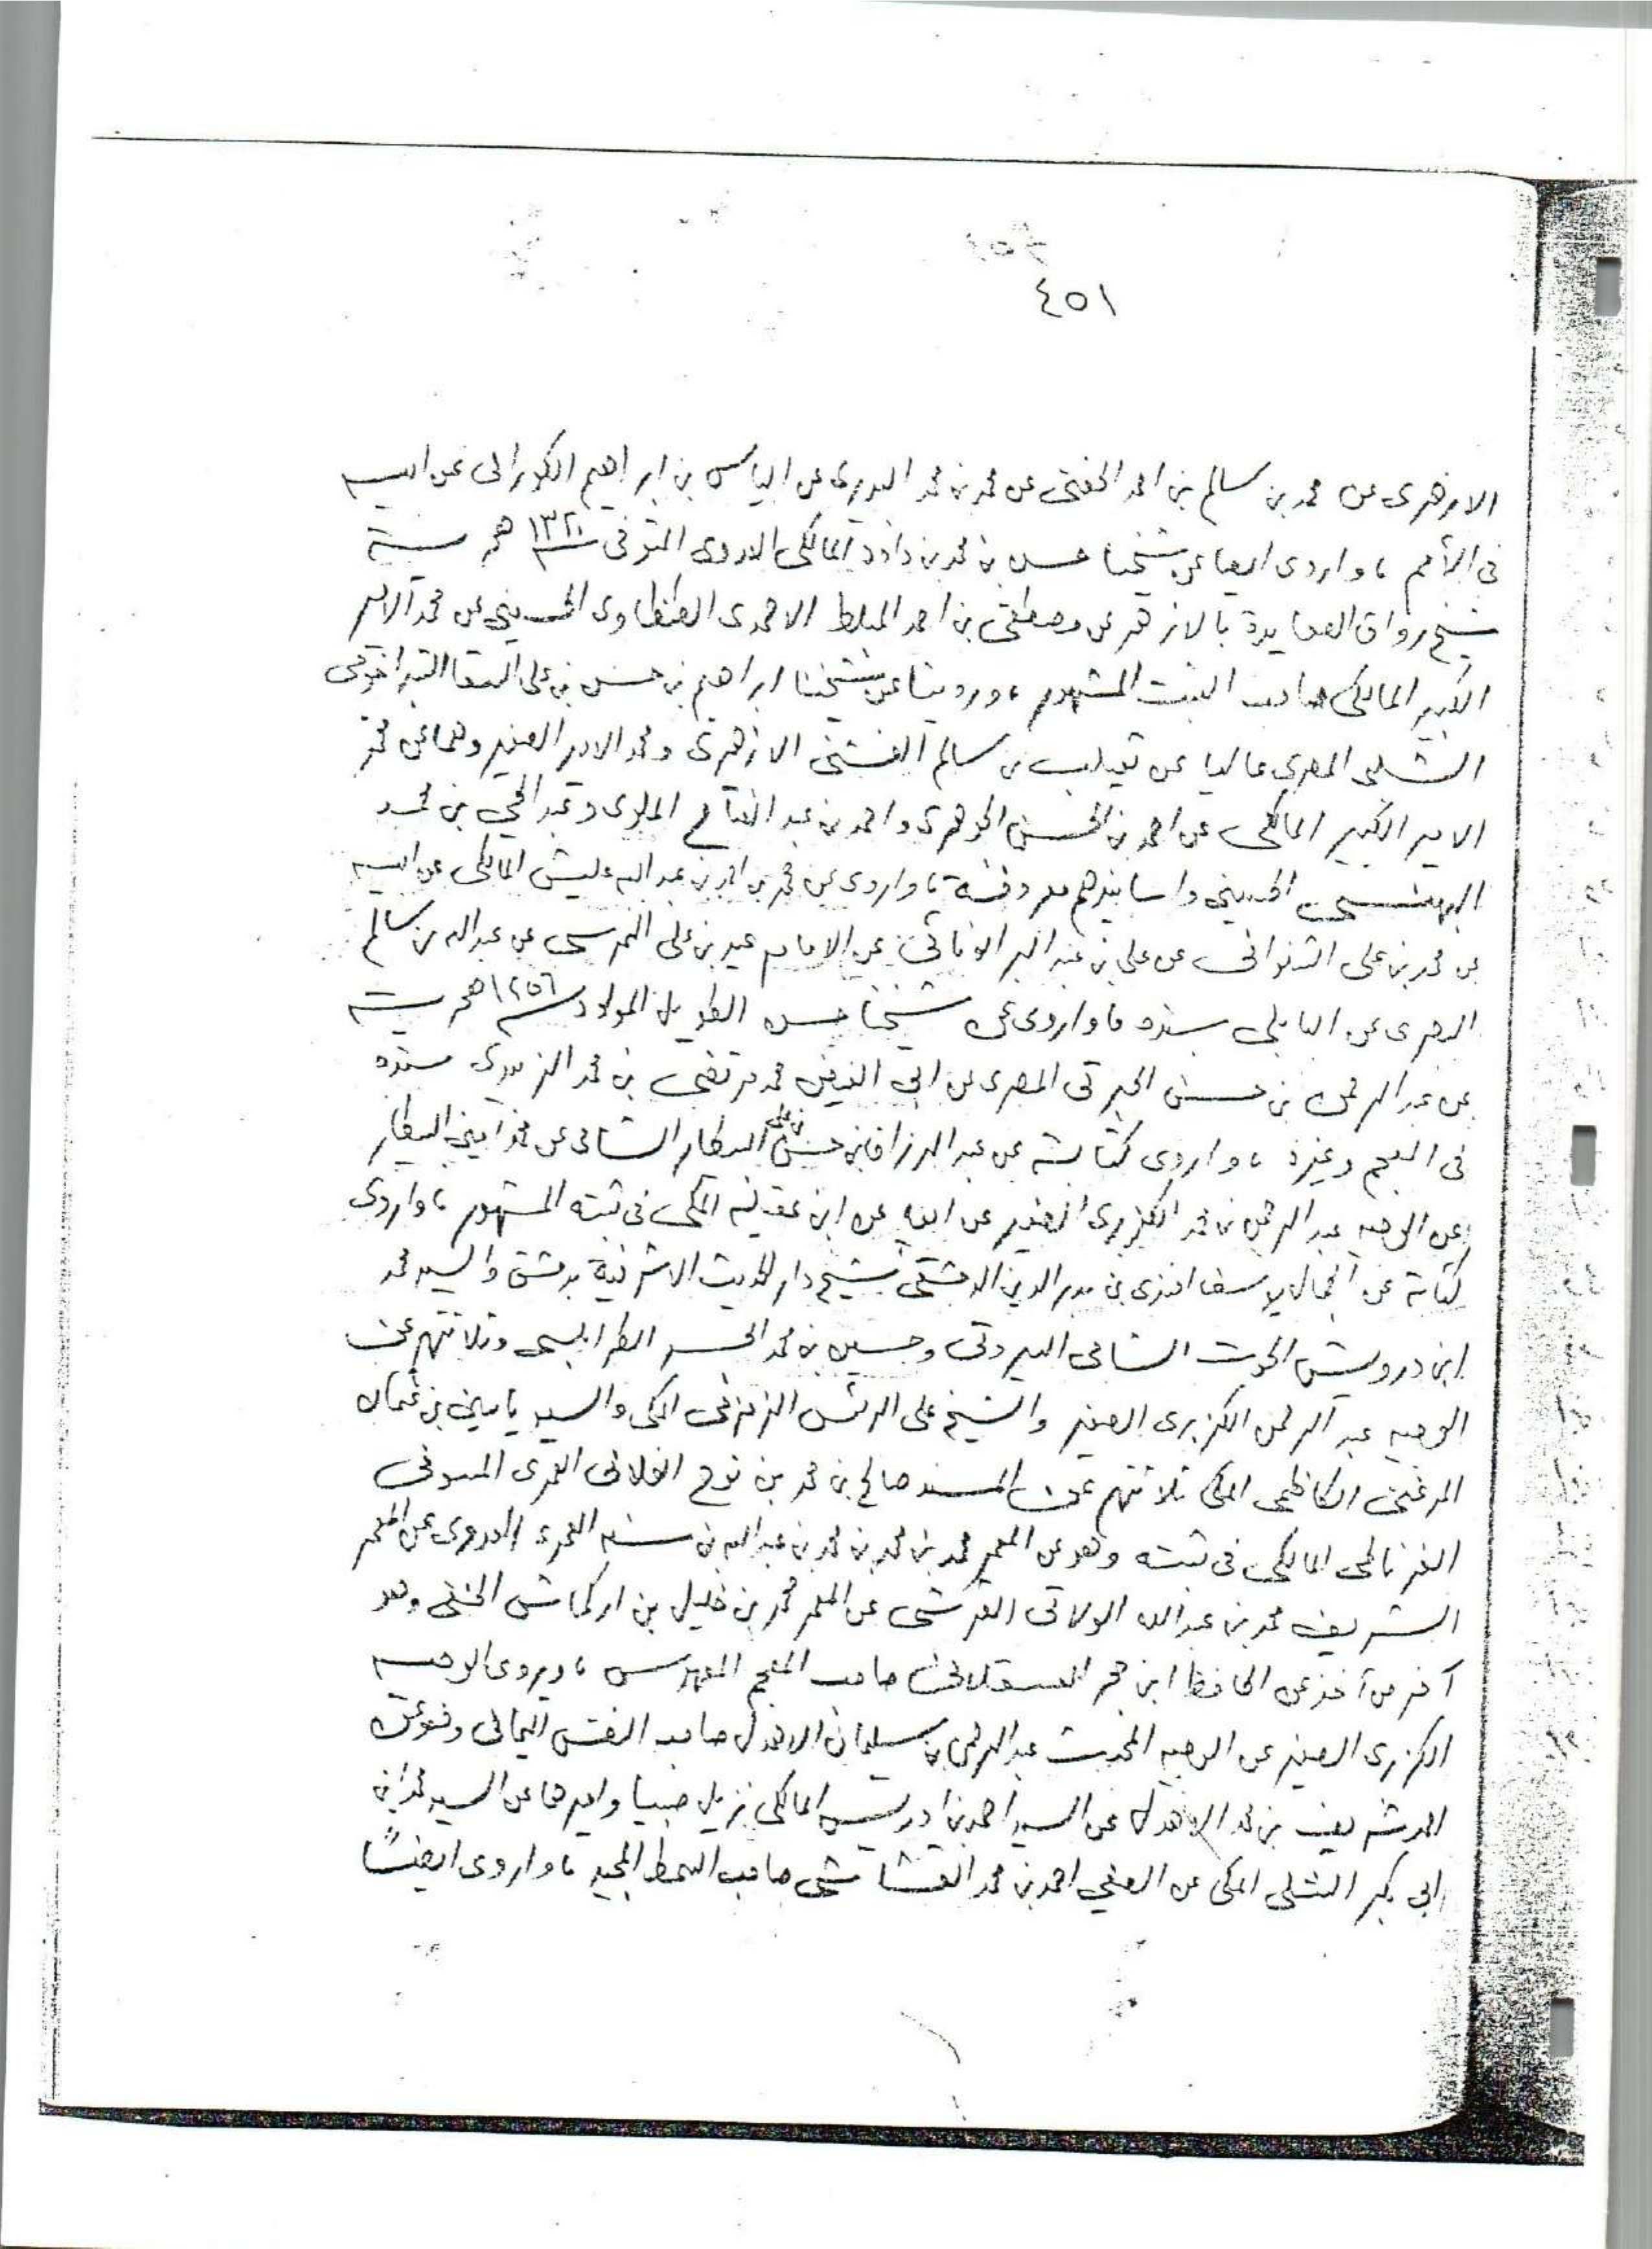 ٤٥١
الازهرى عن محمد بن سالم بن احمد الحفنى عن محمد بن محمد البديرى عن الياس بن ابراهيم الكورانى عن ابيه
فى الأمم ، واروى ايضا عن شيخنا حسن بن محمد بن داود المالكى العدوى المتوفى سنة ١٣٢٠ هجرية
شيخ رواق الصعايدة بالازهر عن مصطفى بن احمد المبلط الاحمدى الطنطاوى عن محمد الامير
الكبير المالكى صاحب الثبت المشهور ، وروينا عن شيخنا ابراهيم بن حسن بن على السقا
الشلبى المصرى عاليا عن ثعيلب بن سالم الفشنى الازهرى ومحمد الامير الصغير وهما عن محمد
الامير الكبير المالكى عن احمد بن الحسن الجوهرى واحمد بن عبد الفتاح الملوى وعبد الحي بن محمد
البهنسى الحسينى واسانيدهم معروفة ، واروى عن محمد بن احمد بن عبد الله عليش المالكى عن ابيه
عن محمد بن على الشنوانى عن على بن عبد البر الونائى عن الامام عيد بن على النمرسى عن عبد الله بن سالم
البصرى عن البابلى بسنده ، واروى عن شيخنا حسن الطويل المولود سنة ١٢٥٦ هجرية
عن عبد الرحمن بن حسن الجبرتى المصرى عن ابى الفيض محمد مرتضى بن محمد الزبيدى بسنده
فى المعجم وغيره ، واروى كتابة عن عبد الرزاق بن حسن البيطار الشامى عن محمد امين البيطار
عن الوجيه عبد الرحمن بن محمد الكزبرى الصغير عن ابيه عن ابن عقيلة المكى فى ثبته المشهور ، واروى
كتابة عن الجمال يوسف افندى بن بدر الدين الدمشقى شيخ دار الحديث الاشرفية بدمشق والسيد محمد
ابن درويش الحوت الشامى البيروتى وحسين بن محمد الجسر الطرابلسى وثلاثتهم عن
الوجيه عبد الرحمن الكزبرى الصغير والشيخ على الريس الزمزمى المكى والسيد ياسين بن عثمان
المرغنى الكاظمى المكى ثلاثتهم عن المسند صالح بن محمد بن نوح الفلانى العمرى المسوفى
الغرناطى المالكى فى ثبته وهو عن المعمر محمد بن محمد بن محمد بن عبد الله بن سنه العمرى عن المعمر
الشريف محمد بن عبد الله الولاتى القرشى عن المعمر محمد بن خليل بن اركماش الحنفى وهو
آخر من آخذ عن الحافظ ابن حجر العسقلانى صاحب المعجم المفهرس ، ويروى الوجيه
الكزبرى الصغير عن الوجيه المحدث عبد الرحمن بن سليمان الاهدل صاحب النفس اليمانى وهو عن
بن محمد الاهدل عن السيد احمد بن ادريس المالكى نزيل صبيا عن السيد محمد ابن
ابى بكر الشلى المكى عن الصفي احمد بن محمد القشاشى صاحب السمط المجيد ، واروى ايضًا